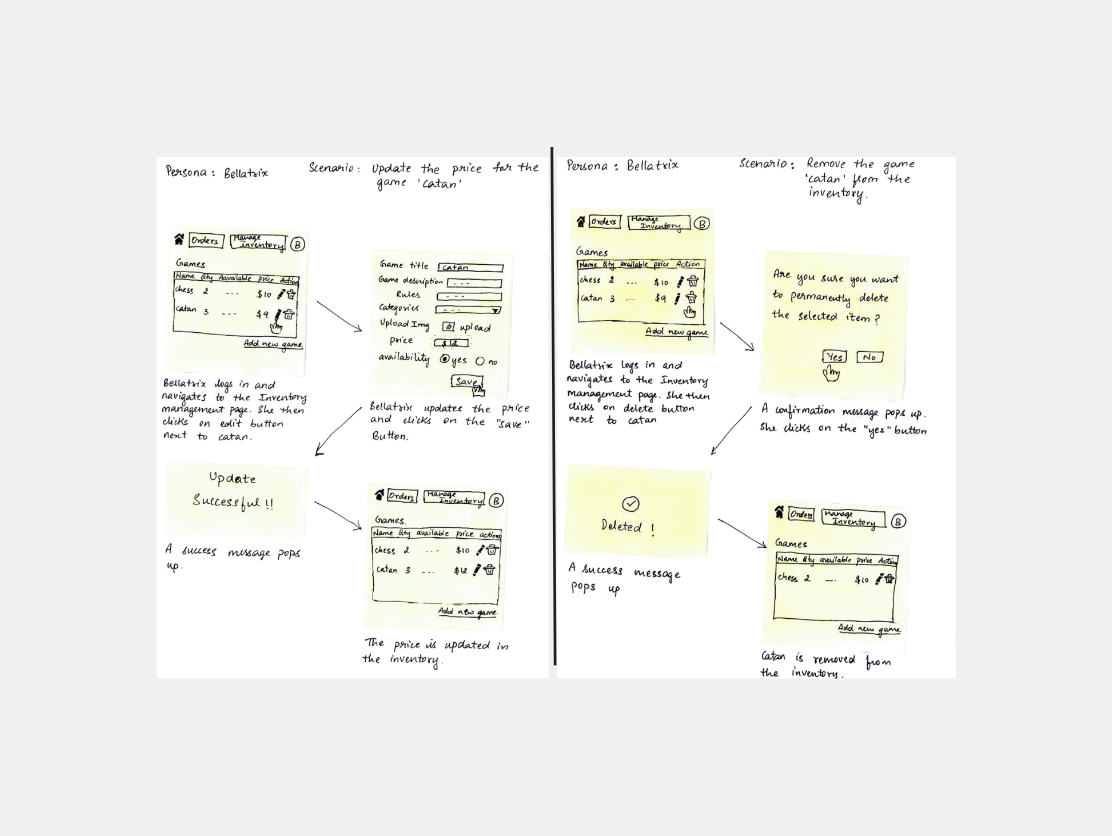 Persona : Bellatrix
Scenario : Update the price for the
game 'catan'
Orders
Manage
Inventory
B
Games
Name Qty Available price Action
chess 2 --- $10
catan 3 --- $9
Add new game
Bellatrix logs in and
navigates to the Inventory
management page. She then
clicks on edit button
next to catan.
Game title catan
Game description ---
Rules ---
Categories ---
Upload Img upload
price $12
availability yes no
Save
Bellatrix updates the price
and clicks on the "save"
Button.
Update
Successful !!
A success message pops
up.
Orders
Manage
Inventory
B
Games.
Name Qty available price action
chess 2 --- $10
catan 3 --- $12
Add new game
The price is updated in
the inventory.
Persona : Bellatrix
Scenario : Remove the game
'catan' from the
inventory.
Orders
Manage
Inventory
B
Games
Name Qty available price Action
chess 2 --- $10
catan 3 --- $9
Add new game
Bellatrix logs in and
navigates to the Inventory
management page. She then
clicks on delete button
next to catan
Are you sure you want
to permanently delete
the selected item ?
Yes No
A confirmation message pops up.
She clicks on the "yes" button
Deleted !
A success message
pops up
Orders
Manage
Inventory
B
Games
Name Qty available price Action
chess 2 --- $10
Add new game
Catan is removed from
the inventory.